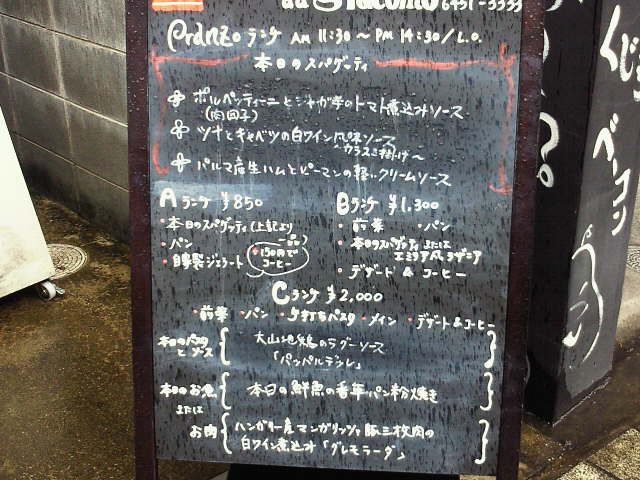 ad Giacomo 6451-3333
Pranzo ランチ AM 11:30〜PM 14:30/L.O.
本日のスパゲーティ
ポルペッティーニとジャガ芋のトマト煮込みソース
(肉団子)
ツナとキャベツの白ワイン風味ソース
〜カラスミ掛け〜
パルマ産生ハムとピーマンの軽いクリームソース
Aランチ ¥850
・本日のスパゲッティ(上記より一品)
・パン
・自家製ジェラート
・130円でコーヒー
Bランチ ¥1,300
・前菜 ・パン
・本日のスパゲッティ または
エミリア風ラザニア
・デザート & コーヒー
Cランチ ¥2,000
・前菜 ・パン ・手打ちパスタ ・メイン ・デザート&コーヒー
本日のパスタとソース
大山地鶏のラグーソース
「パッパルデッレ」
本日のお魚
本日の鮮魚の香草パン粉焼き
または
お肉
ハンガリー産マンガリッツァ豚三枚肉の
白ワイン煮込み「グレモラーダ」